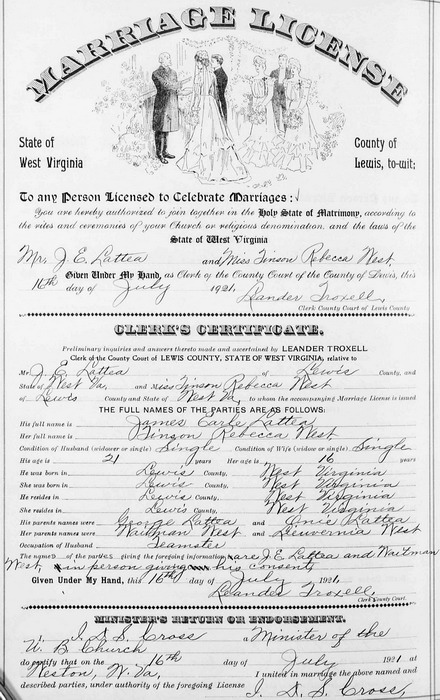 MARRIAGE LICENSE
State of
West Virginia
County of
Lewis, to-wit;
To any Person Licensed to Celebrate Marriages:
You are hereby authorized to join together in the Holy State of Matrimony, according to
the rites and ceremonies of your Church or religious denomination, and the laws of the
State of West Virginia
Mr. J. E. Lattea and Miss Tinson Rebecca West
Given Under My Hand, as Clerk of the County Court of the County of Lewis, this
16th day of July 1921,
Leander Troxell,
Clerk County Court of Lewis County
CLERK'S CERTIFICATE.
Preliminary inquiries and answers thereto made and ascertained by LEANDER TROXELL
Clerk of the County Court of LEWIS COUNTY, STATE OF WEST VIRGINIA, relative to
Mr J. E. Lattea of Lewis County, and
State of West Va, and Miss Tinson Rebecca West
of Lewis County and State of West Va, to whom the accompanying Marriage License is issued
THE FULL NAMES OF THE PARTIES ARE AS FOLLOWS:
His full name is James Earle Lattea
Her full name is Tinson Rebecca West
Condition of Husband (widower or single) Single Condition of Wife (widow or single) Single
His age is 21 years Her age is 16 years
He was born in Lewis County, West Virginia
She was born in Lewis County, West Virginia
He resides in Lewis County, West Virginia
She resides in Lewis County, West Virginia
His parents names were George Lattea and Onie Lattea
Her parents names were Waitman West and Leuvernia West
Occupation of Husband Teamster
The names of the parties giving the foregoing information are J. E. Lattea and Waitman
West, in person giving his consent
Given Under My Hand, this 16th day of July 1921,
Leander Troxell,
Clerk County Court.
MINISTER'S RETURN OR ENDORSEMENT.
I, I. D. S. Cross, a Minister of the
U. B Church
do certify that on the 16th day of July 1921 at
Weston, W. Va, I united in marriage the above named and
described parties, under authority of the foregoing License
I. D. S. Cross,